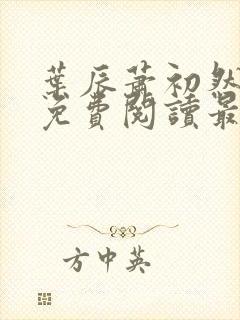 葉辰蕭初然
免費閱讀最
方中英